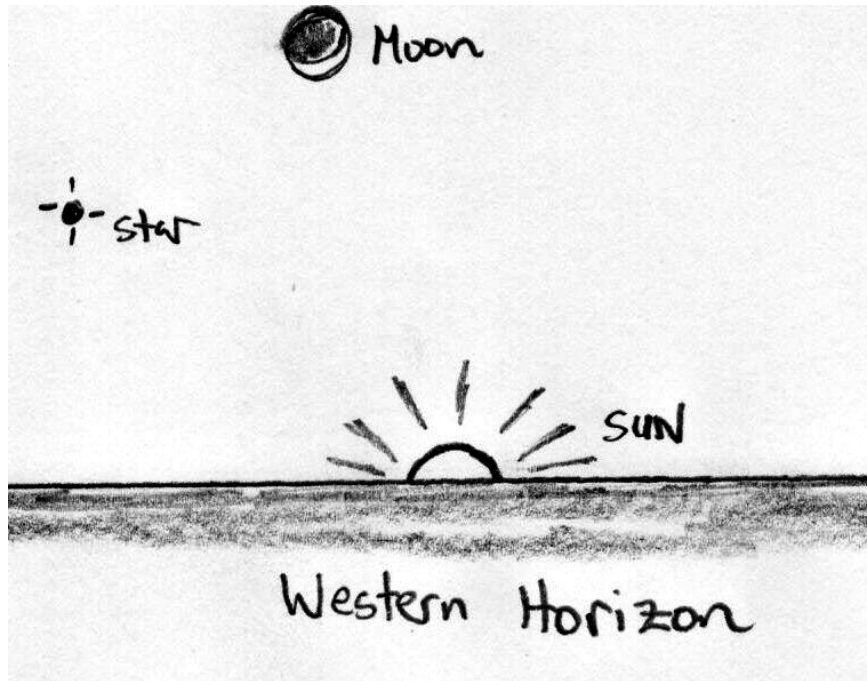 Moon
star
SUN
Western Horizon